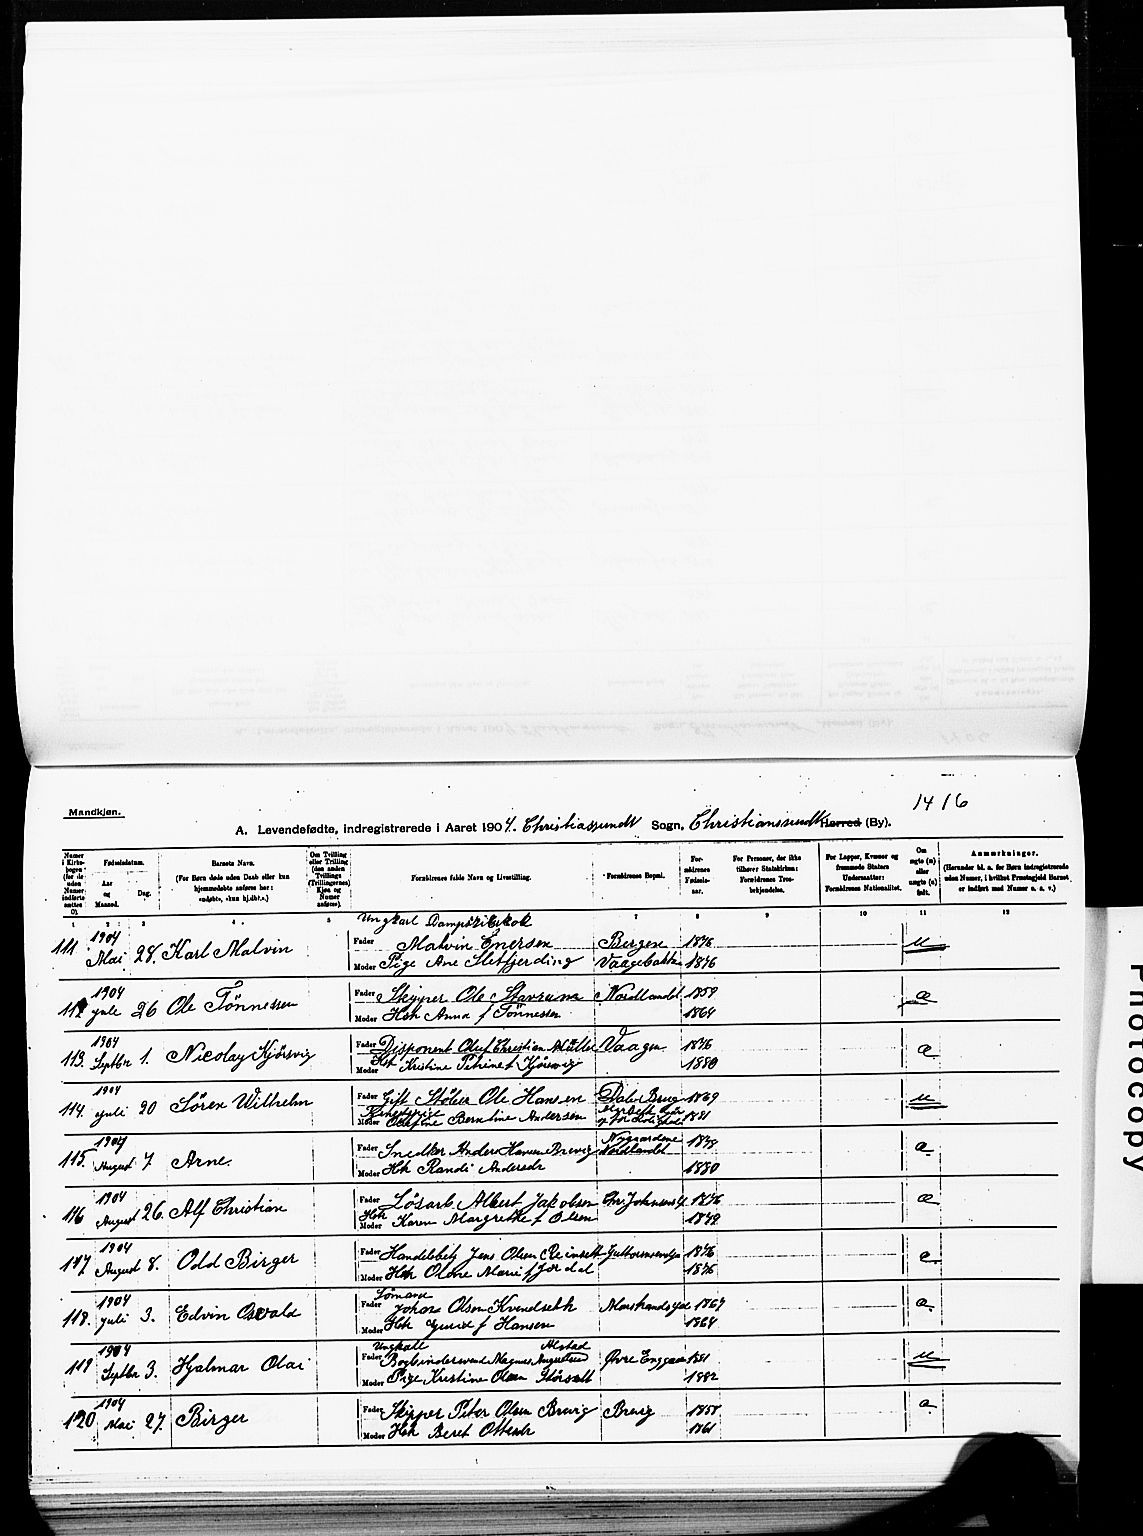 1416
Mandkjøn.
A. Levendefødte, indregistrerede i Aaret 1904. Christianssunds Sogn, Christianssunds Herred (By).
Numer i Kirkebogen (for de uden Numer indførte sættes 0).
Fødselsdatum.
Aar og Maaned.
Dag.
Barnets Navn.
(For Børn døde uden Daab eller kun hjemmedøbte anføres her: «udøbt», «kun hj.dbt.».)
Om Tvilling eller Trilling (den anden Tvillings (Trillingernes) Kjøn og Numer anføres).
Forældrenes fulde Navn og Livsstilling.
Forældrenes Bopæl.
Forældrenes Fødselsaar.
For Personer, der ikke tilhører Statskirken: Forældrenes Trosbekjendelse.
For Lapper, Kvæner og fremmede Staters Undersaatter: Forældrenes Nationalitet.
Om ægte (æ) eller uægte (u) født.
Anmærkninger.
(Herunder bl. a. for Børn indregistrerede uden Numer, i hvilket Præstegjeld Barnet er indført med Numer o. s. v.)
1 2 3 4 5 6 7 8 9 10 11 12
Ungkarl Dampskibskok
111 1904 Mai 28. Karl Malvin Fader Malvin Enersen Bergen 1876 u
Moder Pige Ane Sletfjerding 1876
112 1904 Juli 26 Ole Tönnessen Fader Skipper Ole Nordlandet 1859 æ
Moder Hst Anna f Tönnessen 1864
113. 1904 Septbr 1. Nicolay Kjörsvig Fader Disponent Oluf Christian Müller Vaagen 1876 æ
Moder Hst Kristine Petrine f Kjörsvig 1880
114. 1904 Juli 20 Sören Wilhelm Fader Gift Ole Hansen Dale Brug 1869 u
Moder Berntine Andersen 1881
115. 1904 August 7 Arne. Fader Snedker Anders Hansen Brevig Nordlandet æ
Moder Hst Randi Andersdr 1880
116 1904 August 26. Alf Christian Fader Løsarb. Albert Jakobsen 1876 æ
Moder Hst Karen Margrethe f Olsen
117 1904 August 8. Odd Birger Fader Jens Olsen Reinseth 1876 æ
Moder Hst Oline Marie f Jordal 1876
118. 1904 Juli 3. Edvin Osvald Fader Sömand Johan Olsen Kvendseth 1867 æ.
Moder Hst Gurid f Hansen 1864
119 1904 Septbr 3. Hjalmar Olai Fader Ungkarl Bogbindersvend Magnus Augustsen Alstad Øvre Enggaden 1881 u
Moder Pige Kristine Olsen 1882
120 1904 Mai 27. Birger Fader Skipper Peter Olsen Brevig Brevig 1858 æ.
Moder Hst Beret Ottesdr 1861
Photocopy